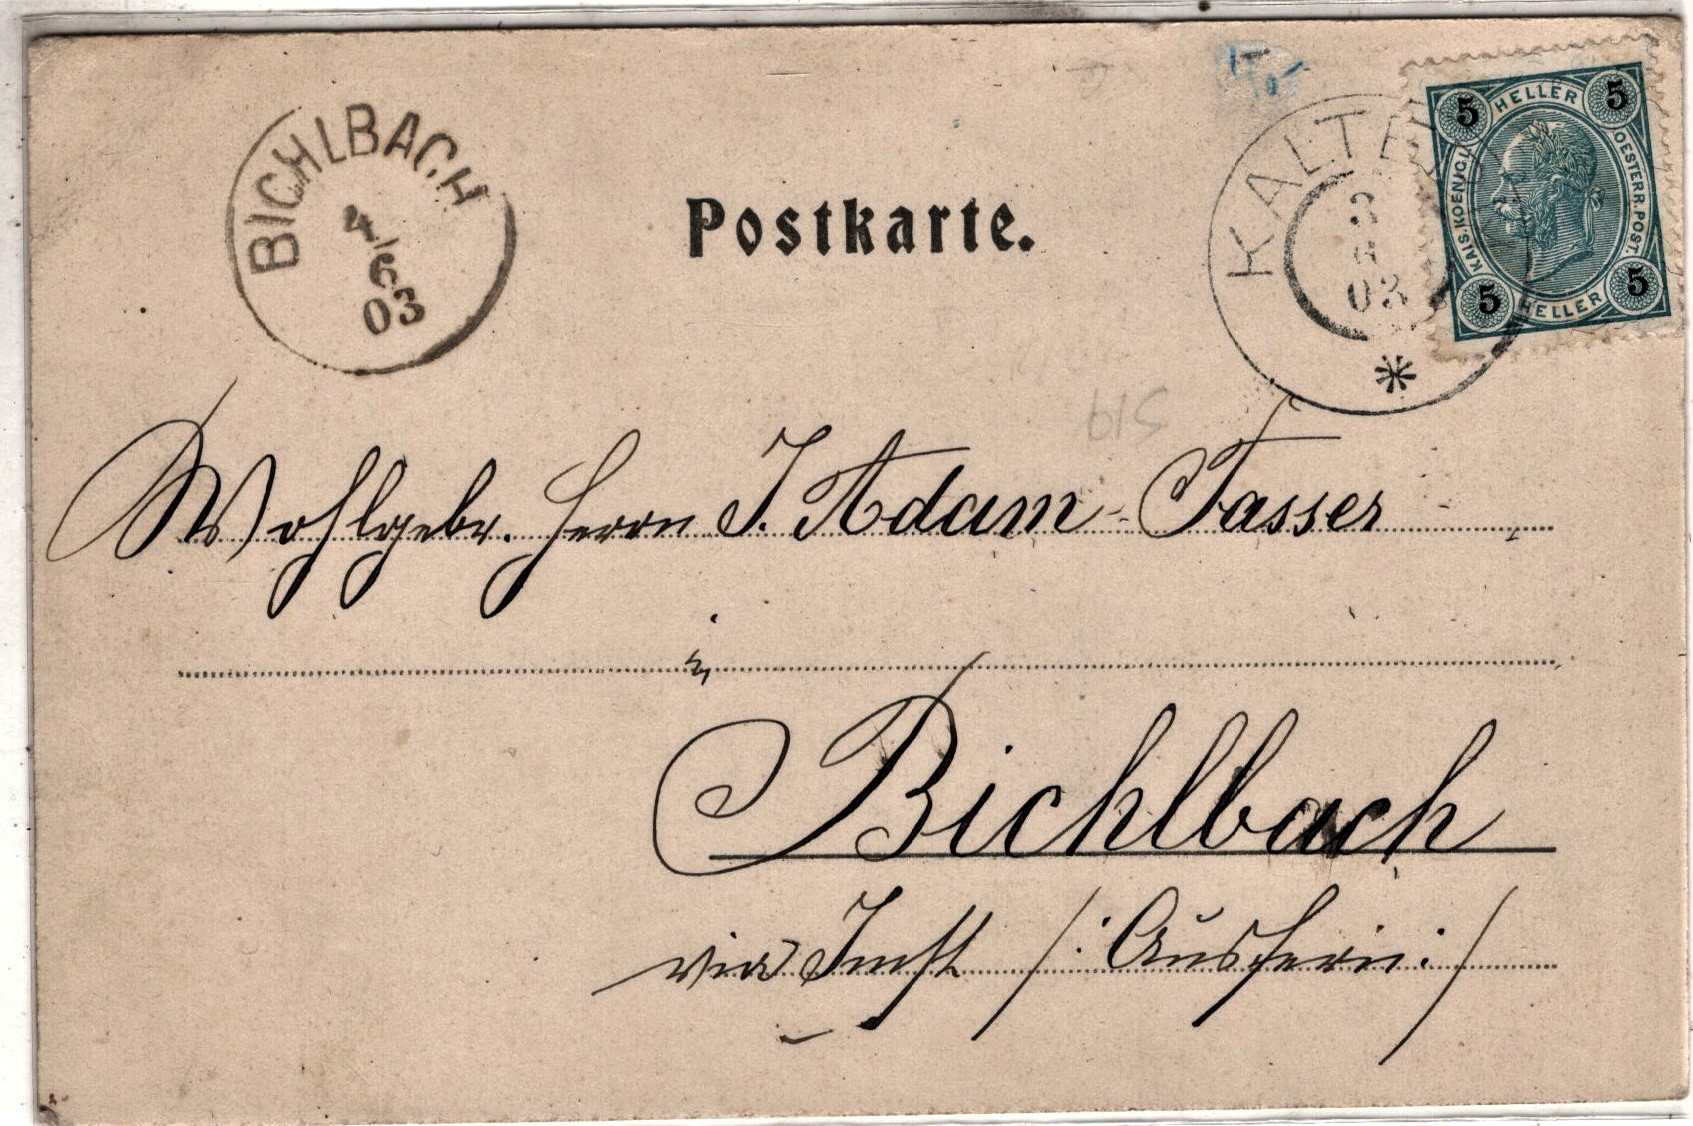 BICHLBACH
4/6
03
Postkarte.
KALTE
3
03
5 HELLER 5
KAIS. KOENIGL.
OESTERR. POST.
5 HELLER 5
615
Wohlgebr. Herrn J. Adam Tasser
in
Bichlbach
via Imst /: Ausfern :/